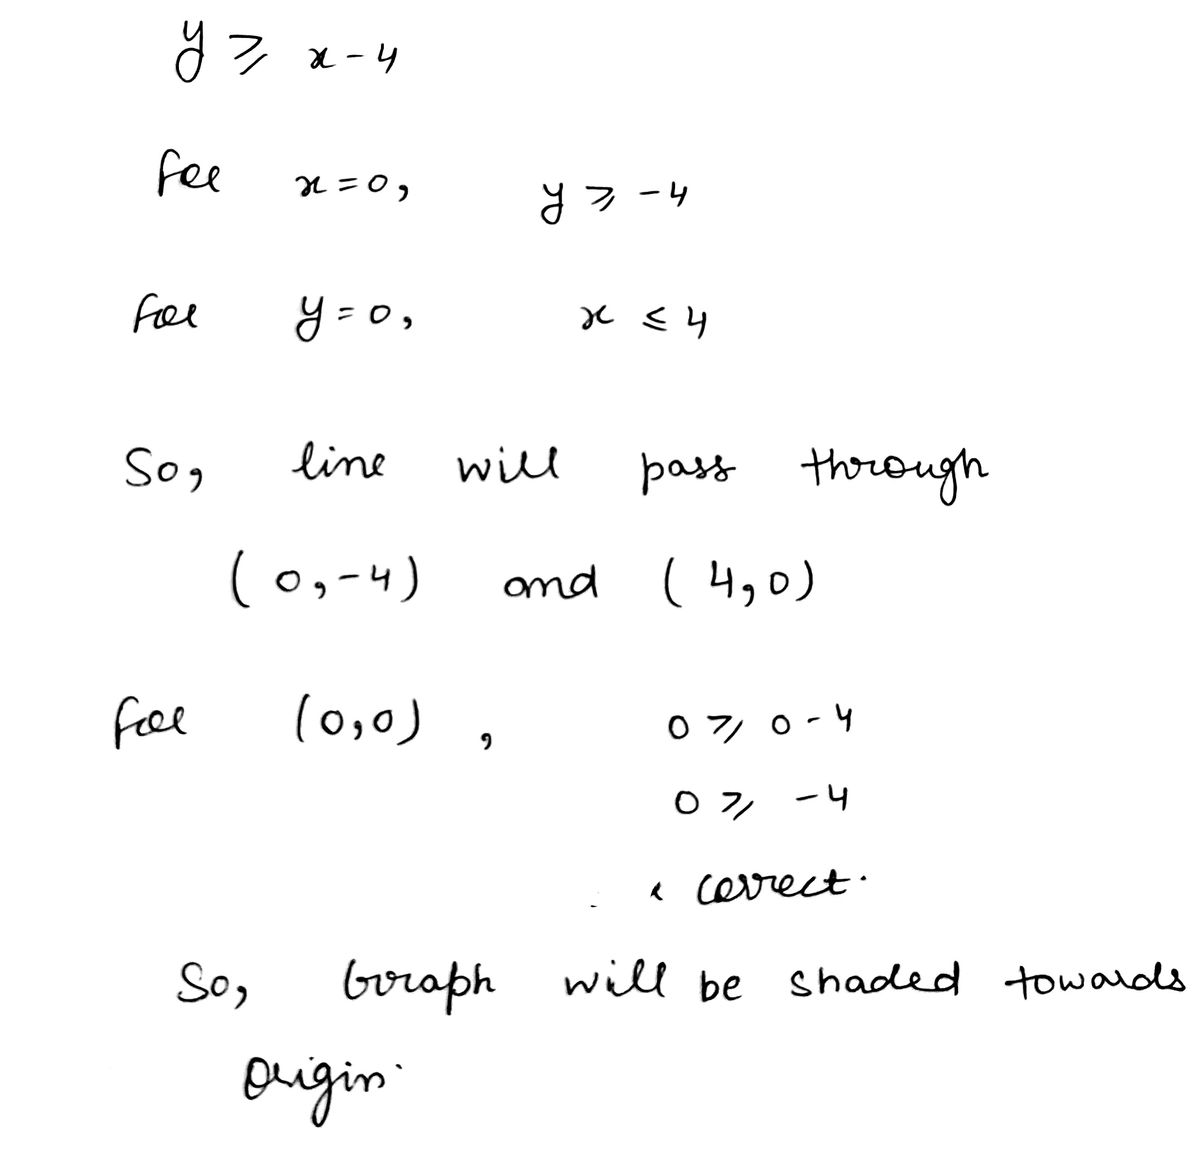 y ⩾ x - 4
For x = 0, y ⩾ -4
For y = 0, x ≤ 4
So, line will pass through
(0, -4) and (4, 0)
For (0,0), 0 ⩾ 0 - 4
0 ⩾ -4
correct.
So, Graph will be shaded towards
Origin.